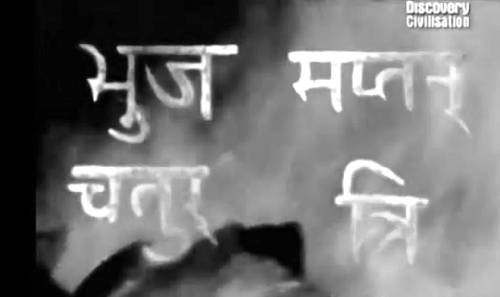 Discovery
Civilisation
भुज मप्तन्
चतुर् त्रि